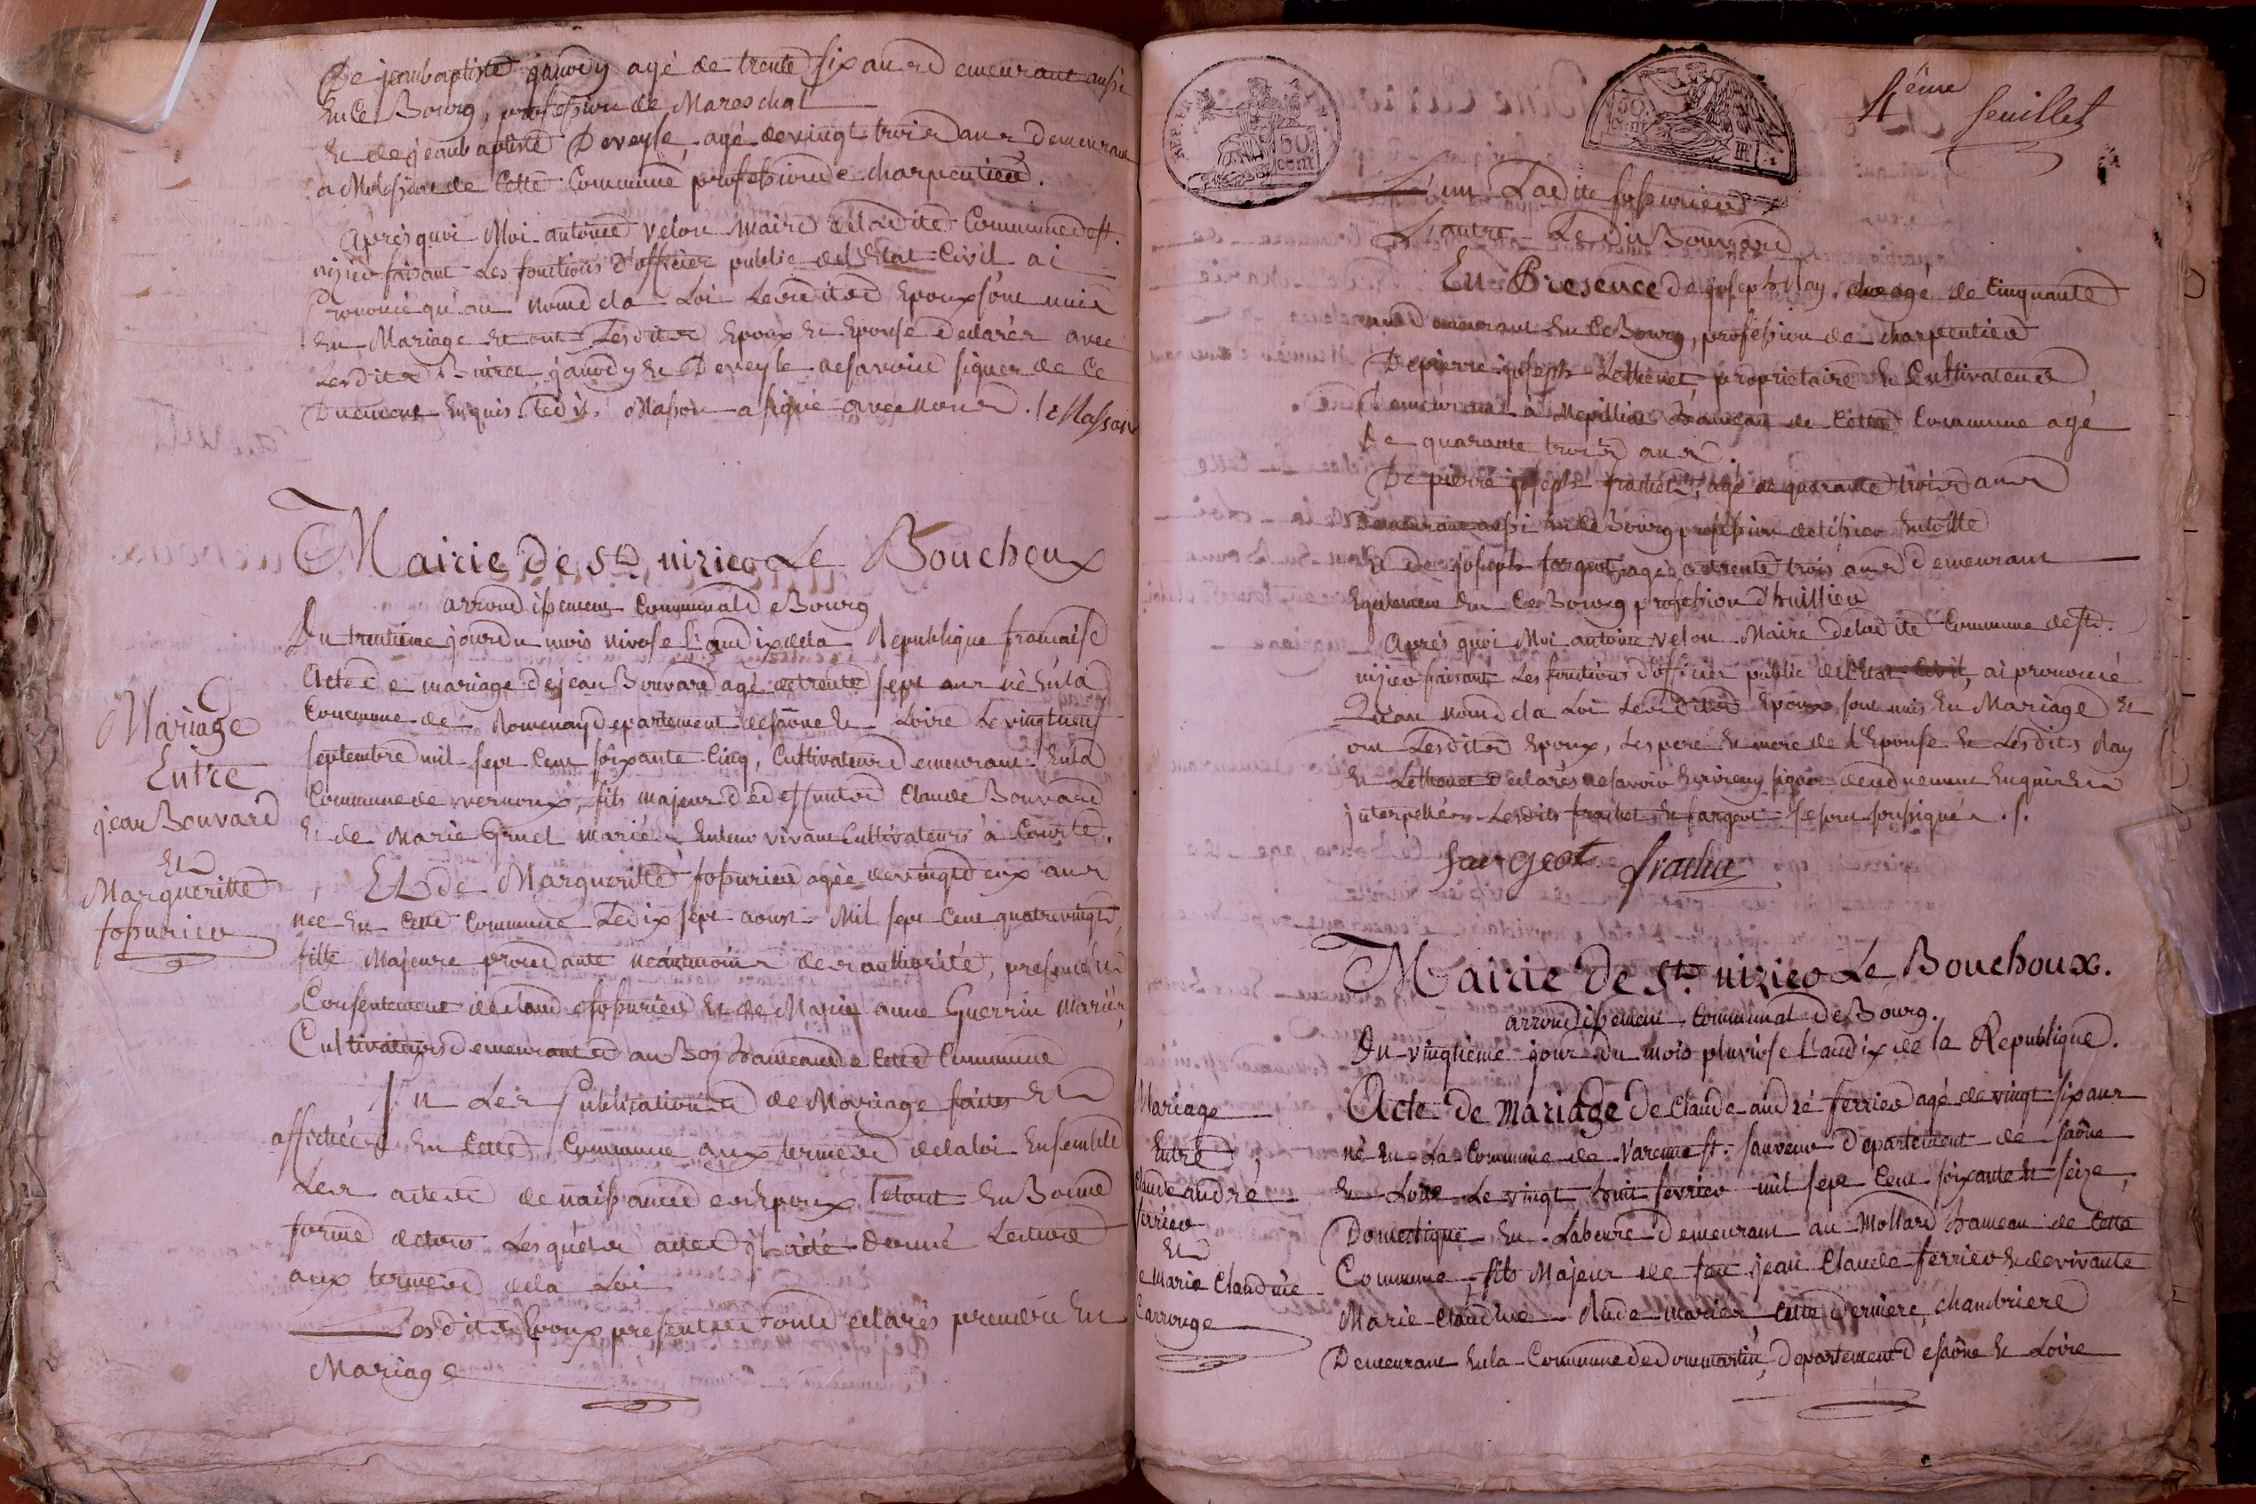 De jeanbaptiste janody agé de trente six ans demeurant aussi
En Ce Bourg, profession de Mareschal
Et de jeanbaptiste Deveyle, agé de vingt trois ans Demeurant
a de Cette Commune profession de charpentier.
Après quoi Moi antoine velon Maire de ladite Commune de st.
nizier faisant Les fonctions d'officier public de l'Etat Civil ai
Prononcé qu'au nom de la Loi Lesdits Epoux sont unis
En Mariage Et ont Lesdits Epoux Et Epouse Declarés avec
Lesdits janody Et Deveyle ne savoir signer de Ce
Duement Enquis. Ledit Masson a signé avec nous. Masson
Mairie de St. nizier Le Bouchoux
arrondissement Communal de Bourg
Du trentième jour du mois nivose L'an dix de la Republique francaise
Acte de mariage de jean Bouvard agé de trente sept ans né En la
Commune de Romenay departement de saône Et Loire Le vingt neuf
septembre mil sept Cent soixante Cinq, Cultivateur demeurant En la
Commune de vernoux, fils majeur de deffunts Claude Bouvard
Et de Marie Gruel mariés En leur vivant Cultivateurs à Courte.
Mariage
Entre
jean Bouvard
Et
Margueritte
fossurier
Et de Margueritte fossurier agée de vingt deux ans
née En Cette Commune Le dix sept aoust Mil sept Cent quatre vingt,
fille Majeure procedante néantmoins de l'authorité, presence Et
Consentement de Claude fossurier Et de Marie anne Guerrin Mariés,
Cultivateurs demeurant au Boz hameau de Cette Commune
Vu Les Publications de Mariage faites Et
affichées En Cette Commune aux termes de la loi Ensemble
Les actes de naissance des Epoux, Le tout En Bonne
forme de tous Lesquels actes il a été donné Lecture
aux termes de la Loi
Lesdits Epoux presents se sont declarés prendre En
Mariage
4eme feuillet
50 cent
L'un Ladite fossurier
L'autre Le dit Bouvard
En Presence De joseph Ray, agé de Cinquante
ans demeurant En Ce Bourg, profession de charpentier
De pierre joseph Lethenet, proprietaire Et Cultivateur
Demeurant à hameau de Cette Commune agé
De quarante trois ans.
De pierre joseph frachet, agé de quarante trois ans
Demeurant aussi En Ce Bourg profession de tissier En toille
Et de joseph fargeot, agé de trente trois ans demeurant
Egalement En Ce Bourg profession d'huissier
Après quoi Moi antoine velon Maire de ladite Commune de st.
nizier faisant Les fonctions d'officier public de l'Etat Civil, ai prononcé
Qu'au nom de la Loi Lesdits Epoux sont unis En Mariage Et
ont Lesdits Epoux, Les pere Et mere de l'Epouse Et Lesdits Ray
Et Lethenet declarés ne savoir Ecrire ny signer de ce duement Enquis Et
interpellés. Lesdits frachet Et fargeot se sont soussignés.
fargeot frachet
Mairie de St. nizier Le Bouchoux.
arrondissement Communal de Bourg.
Du vingtième jour du mois pluviose L'an dix de la Republique.
Mariage
Entre
Claude andré
ferrier
Et
Marie Claudine
Carrouge
Acte de mariage de Claude andré ferrier agé de vingt six ans
né En La Commune de Varenne st. sauveur Departement de saône
Et Loire Le vingt huit fevrier mil sept Cent soixante Et seize,
Domestique En Labeure Demeurant au Mollard hameau de Cette
Commune, fils Majeur de feu jean Claude ferrier Et de vivante
Marie Claudine Rude mariés, Cette derniere, chambriere
Demeurant En la Commune de dommartin, departement de saône Et Loire